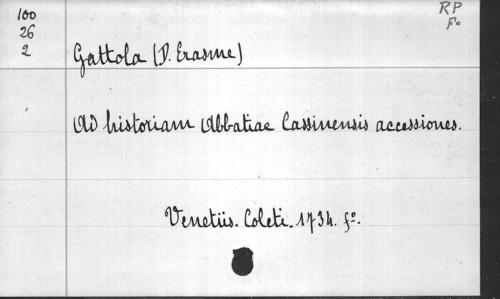 100
26
2
RP
Fo
Gattola (D. Erasme)
Ad historiam Abbatiae Cassinensis accessiones.
Venetiis. Coleti. 1734. fo.